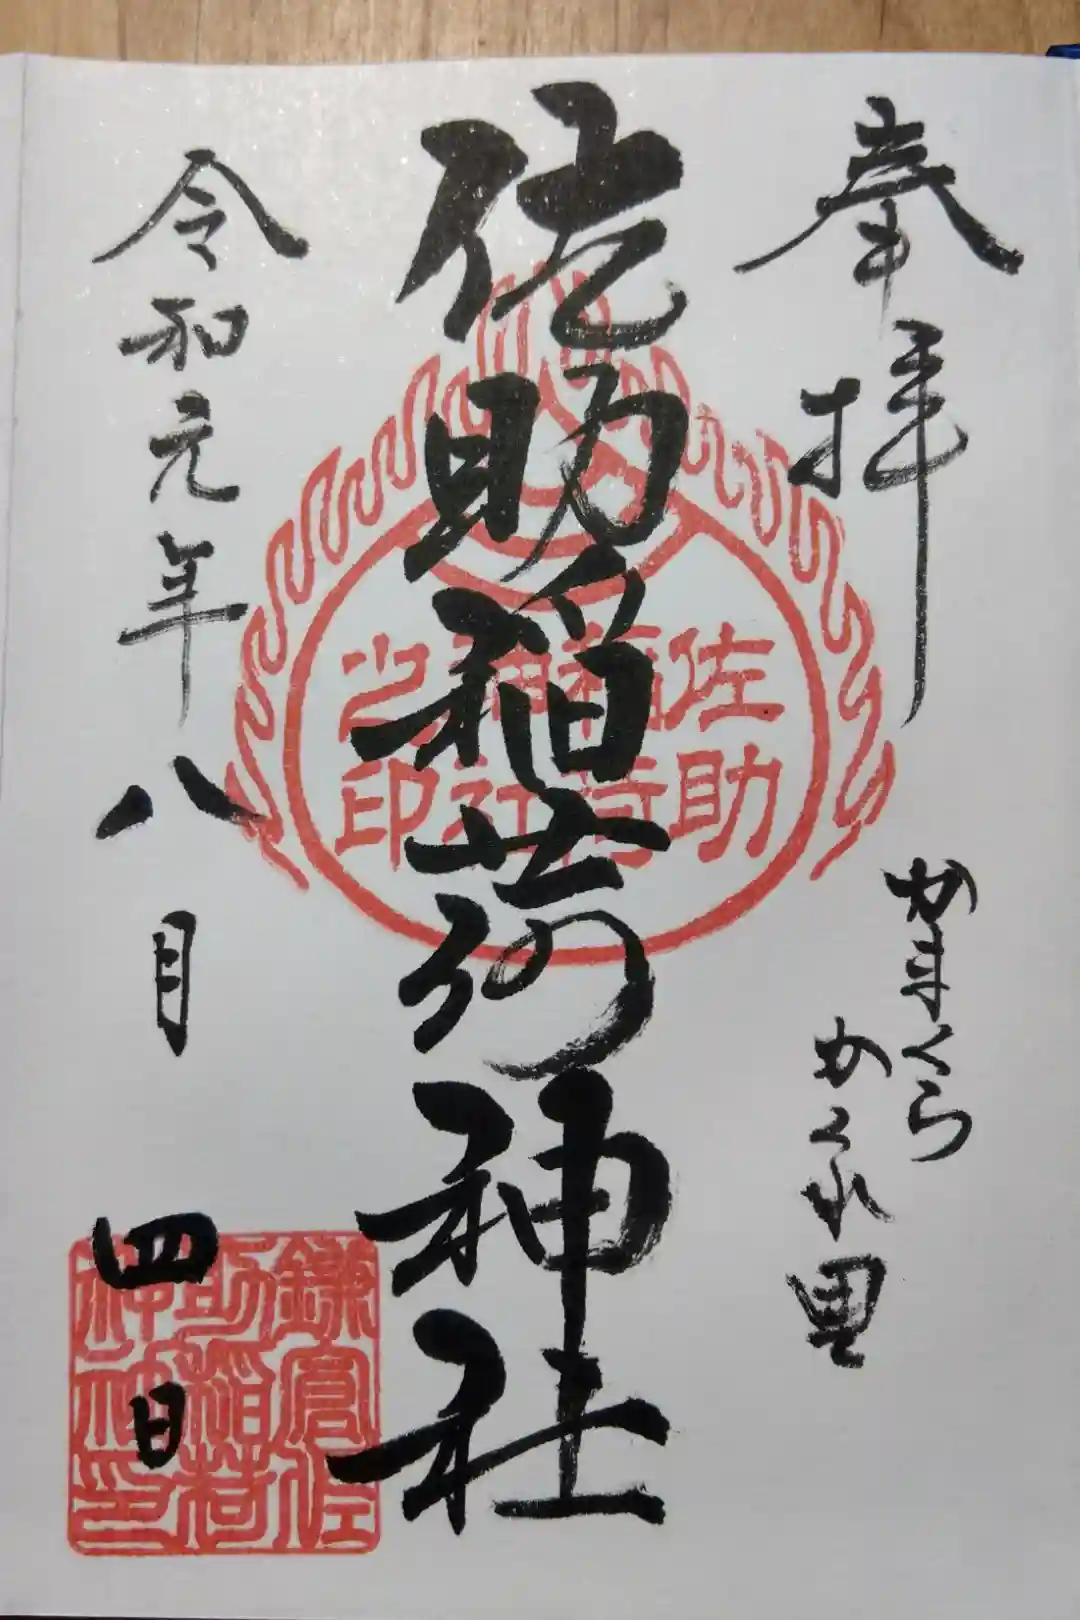 奉拝
かまくら
かくれ里
佐助稲荷神社
佐助
稲荷
神社
之印
令和元年八月四日
鎌倉佐
助稲荷
神社印